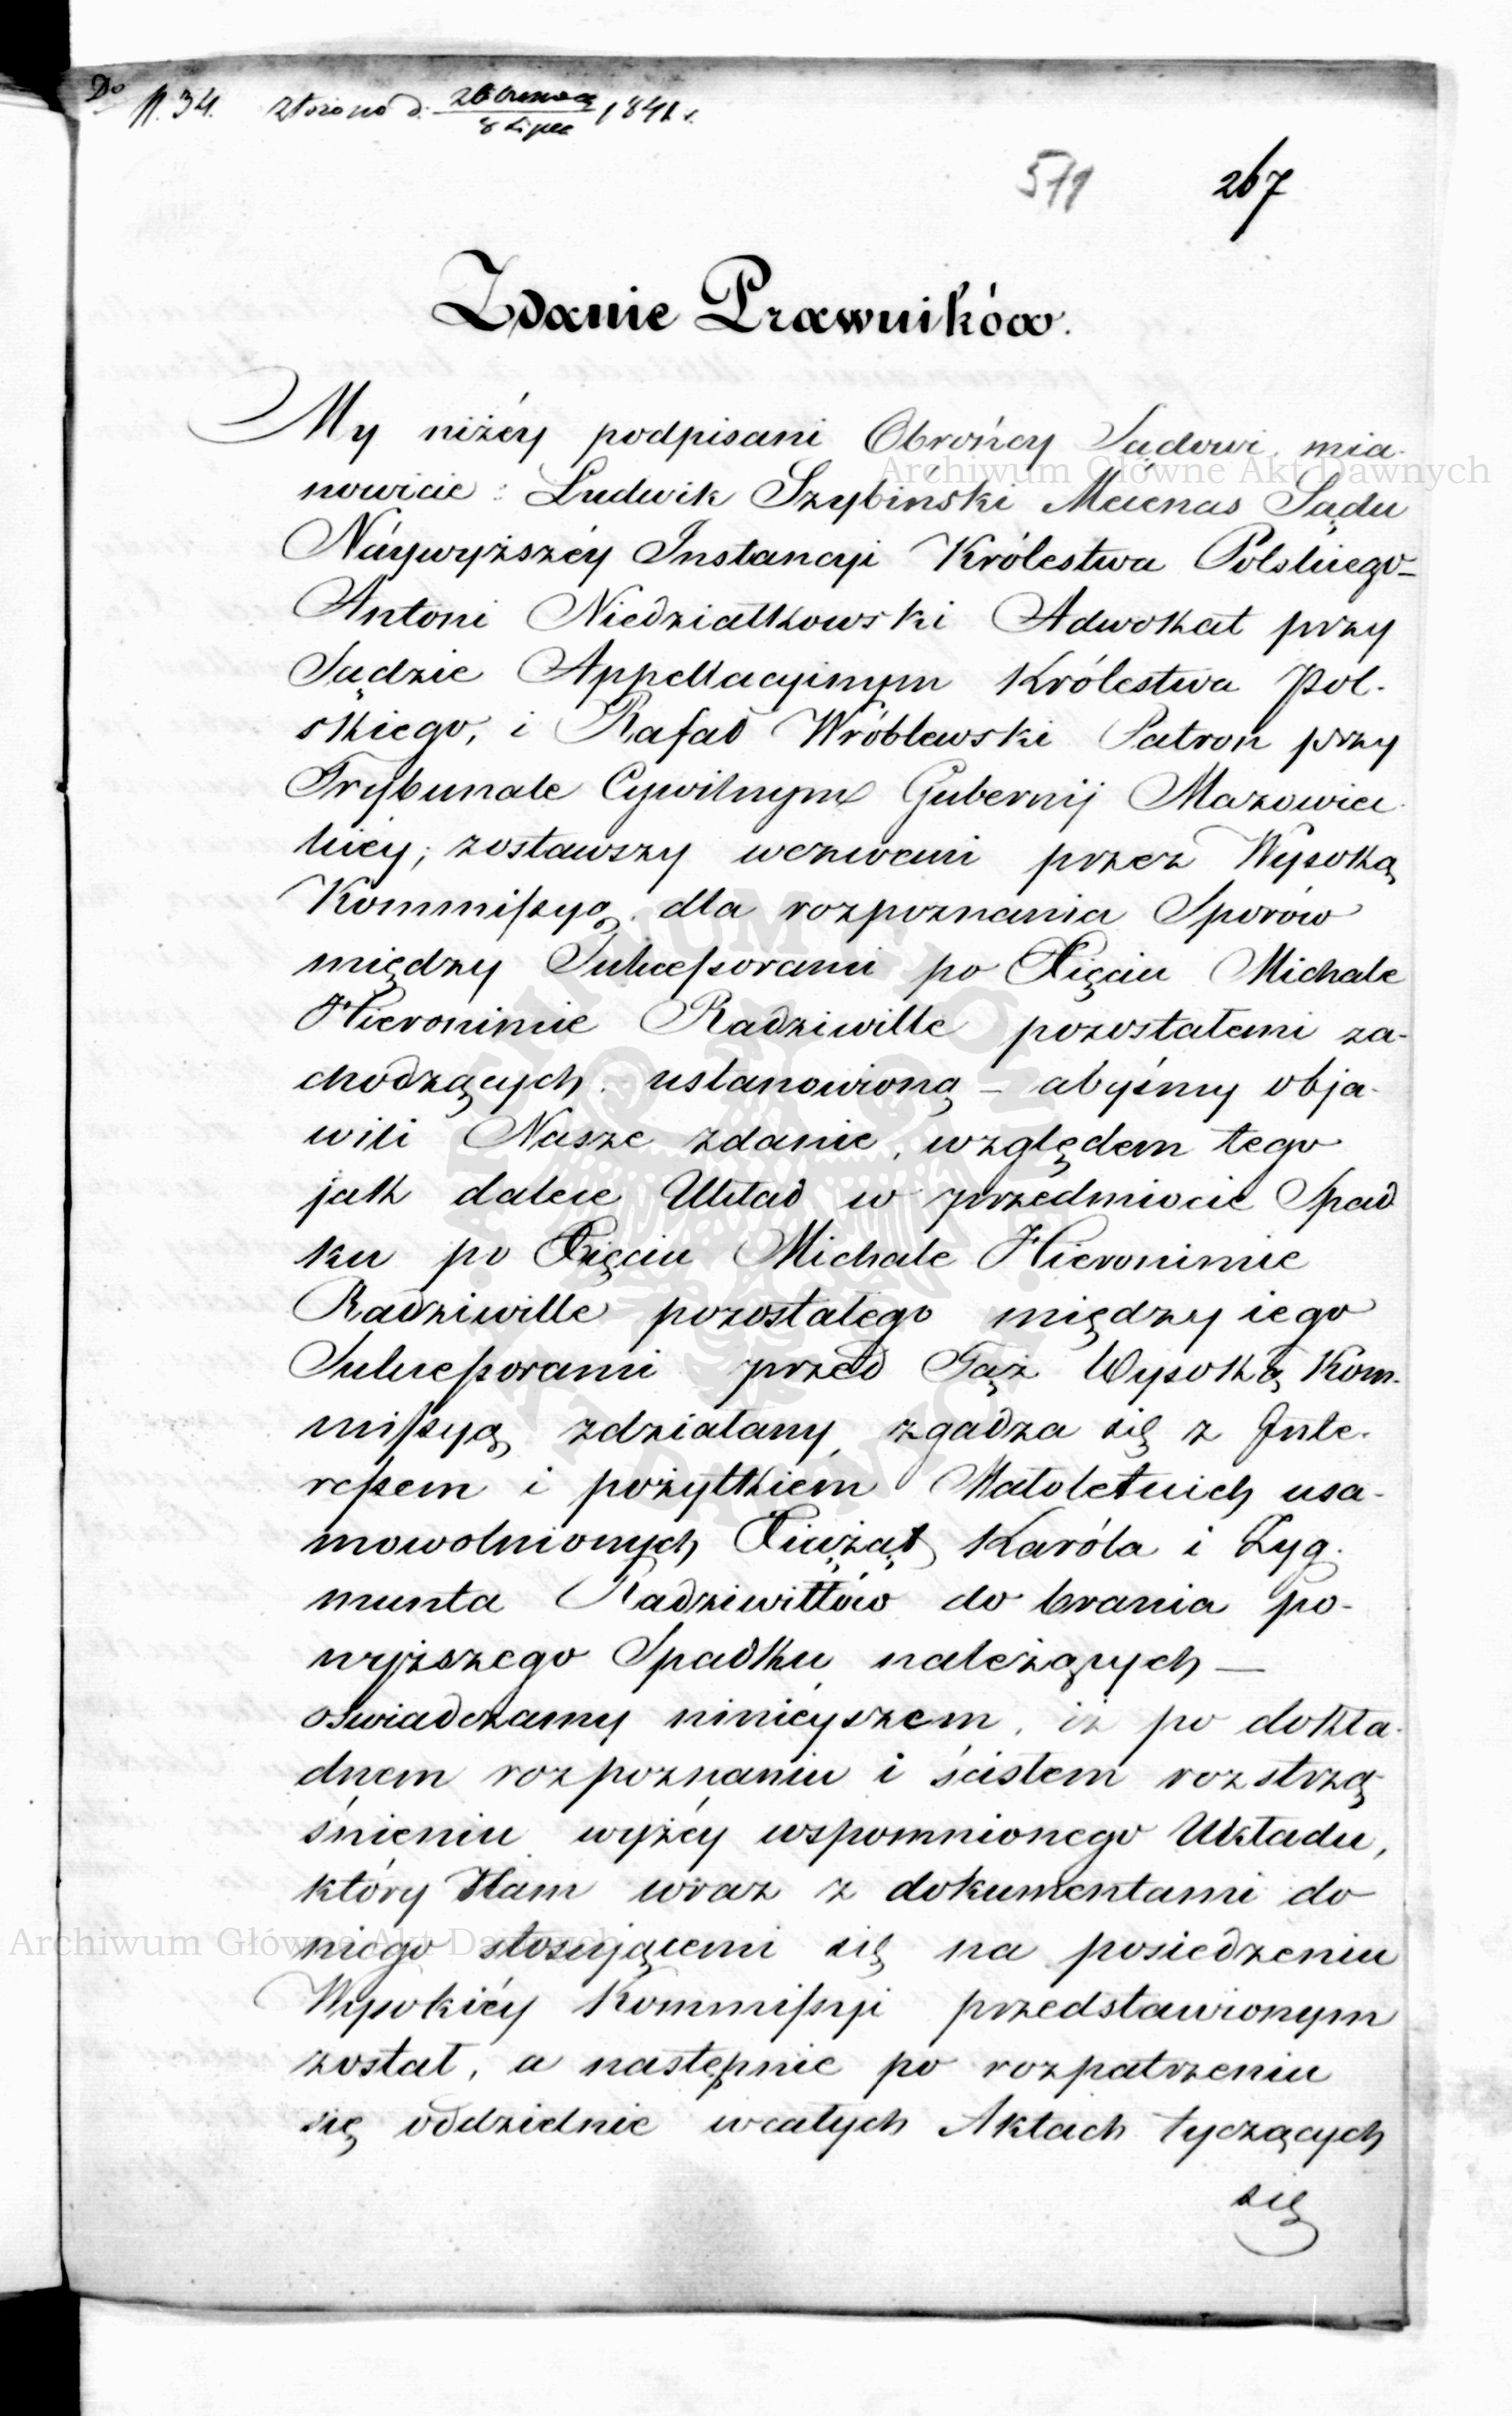 Do N. 34. złożono d. 26 Czerwca / 8 Lipca 1841 r.
579 267
Zdanie Prawników.
My niżéy podpisani Obrońcy Sądowi mia-
nowicie: Ludwik Szybiński Mecenas Sądu
Náywyższéy Instancyi Królestwa Polskiego –
Antoni Niedziałkowski Adwokat przy
Sądzie Appellacyinym Królestwa Pol-
skiego, i Rafał Wróblewski Patron przy
Trybunale Cywilnym Gubernij Mazowiec-
kiéy; zostawszy wezwani przez Wysoką
Kommissyą dla rozpoznania Sporów
między Sukcessorami po Xięciu Michale
Hieronimie Radziwille pozostałemi za-
chodzących ustanowioną – abyśmy obja-
wili Nasze zdanie, względem tego
jak dalece Układ w przedmiocie Spad
ku po Xięciu Michale Hieronimie
Radziwille pozostałego między iego
Sukcessorami przed Taż Wysoką Kom-
missyą zdziałany, zgadza się z Inte-
ressem i pożytkiem Małoletnich usa-
mowolnionych Xiążąt Karóla i Zyg-
munta Radziwiłłów do brania po-
wyższego Spadku należących —
oświadczamy ninieyszem, iż po dokła-
dnem rozpoznaniu i ścisłem roztrzą
śnieniu wyżéy wspomnionego Układu,
który Nam wraz z dokumentami do
niego stosującemi się na posiedzeniu
Wysokiéy Kommissyi przedstawionym
został, a następnie po rozpatrzeniu
się oddzielnie w całych Aktach tyczących
się
Archiwum Główne Akt Dawnych
Archiwum Główne Akt Dawnych
ARCHIWUM GŁÓWNE AKT DAWNYCH